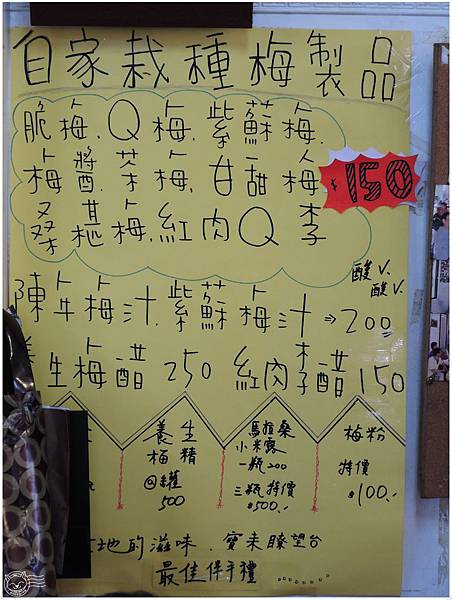 自家栽種梅製品
脆梅.Q梅.紫蘇梅.
梅醬.茶梅.甘甜梅
¥150
桑椹梅.紅肉Q李
酸V.
酸V.
陳年梅汁.紫蘇梅汁⇒200
生梅醋 250 紅肉李醋 150
養生
梅精
@罐
500
馬拉桑
小米露
一瓶200
三瓶特價
$500.-
梅粉
特價
$100.-
在地的滋味.寶來瞭望台
最佳伴手禮........